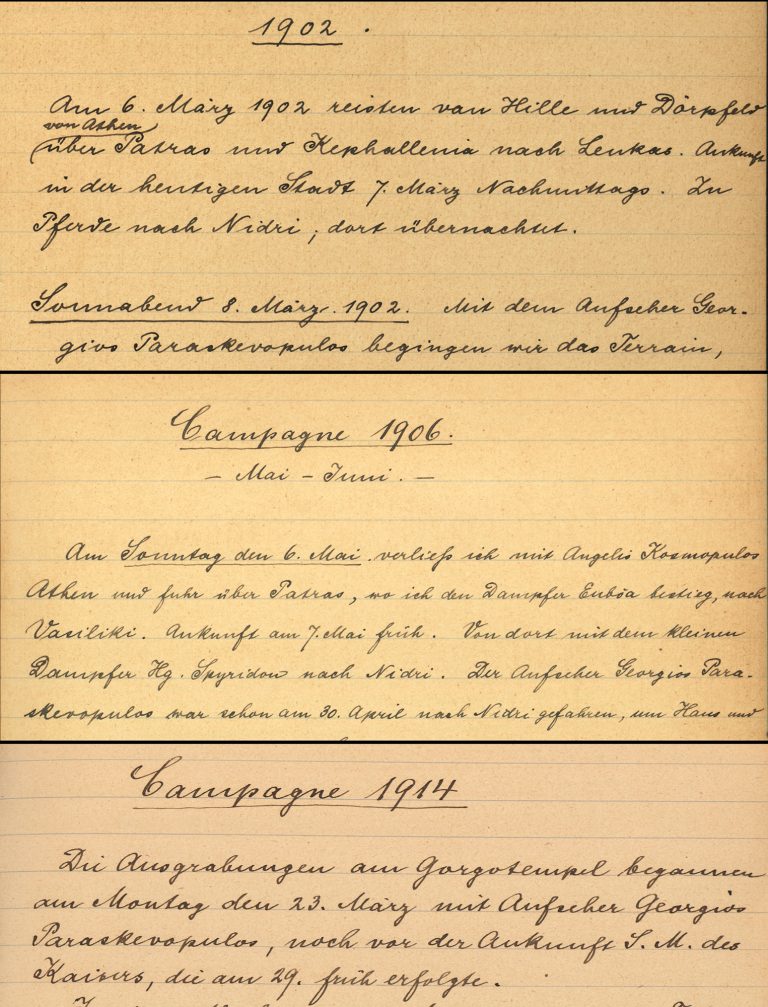 1902.
Am 6. März 1902 reisten van Hille und Dörpfeld
von Athen
über Patras und Kephallenia nach Leukas. Ankunft
in der heutigen Stadt 7. März Nachmittags. Zu
Pferde nach Nidri; dort übernachtet.
Sonnabend 8. März. 1902. Mit dem Aufseher Geor-
gios Paraskevopulos begingen wir das Terrain,
Campagne 1906.
- Mai - Juni. -
Am Sonntag den 6. Mai verließ ich mit Angelis Kosmopulos
Athen und fuhr über Patras, wo ich den Dampfer Euböa bestieg, nach
Vasiliki. Ankunft am 7. Mai früh. Von dort mit dem kleinen
Dampfer Hg. Spyridon nach Nidri. Der Aufseher Georgios Para-
skevopulos war schon am 30. April nach Nidri gefahren, um Haus und
Campagne 1914
Die Ausgrabungen am Gorgotempel begannen
am Montag den 23. März mit Aufseher Georgios
Paraskevopulos, noch vor der Ankunft S. M. des
Kaisers, die am 29. früh erfolgte.